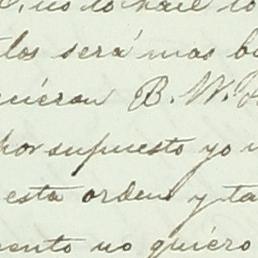 no lo hace lo
los será mas b
quiéran B. W.
por supuesto yo
esta orden y ta
mento no quiéro